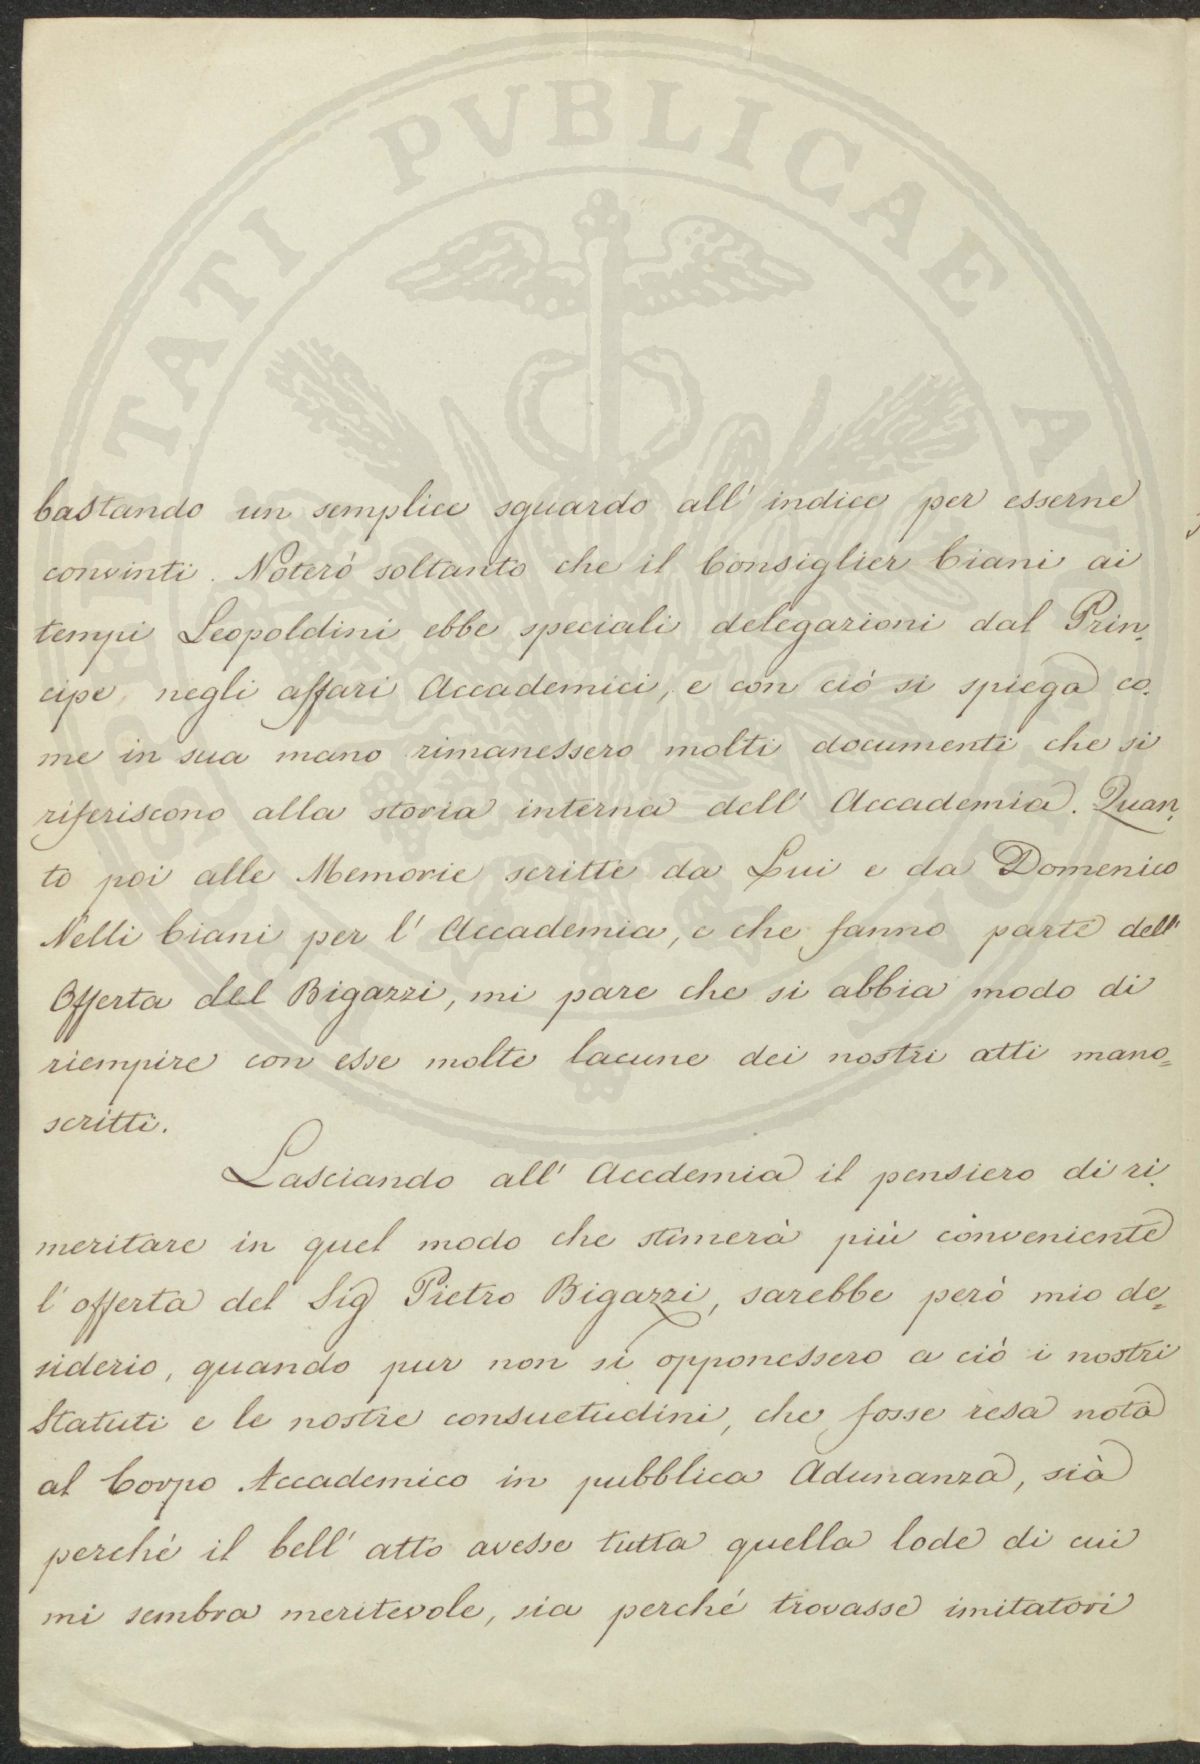 bastando un semplice sguardo all' indice per esserne
convinti. Noterò soltanto che il Consiglier Ciani ai
tempi Leopoldini ebbe speciali delegazioni dal Prin=
cipe negli affari Accademici, e con ciò si spiega co=
me in sua mano rimanessero molti documenti che si
riferiscono alla storia interna dell' Accademia. Quan=
to poi alle Memorie scritte da Lui e da Domenico
Nelli Ciani per l' Accademia, e che fanno parte dell'
Offerta del Bigazzi, mi pare che si abbia modo di
riempire con esse molte lacune dei nostri atti mano=
scritti.
Lasciando all' Accdemia il pensiero di ri=
meritare in quel modo che stimerà più conveniente
l'offerta del Sig Pietro Bigazzi, sarebbe però mio de=
siderio, quando pur non si opponessero a ciò i nostri
Statuti e le nostre consuetudini, che fosse resa nota
al Corpo Accademico in pubblica Adunanza, sià
perché il bell' atto avesse tutta quella lode di cui
mi sembra meritevole, sia perché trovasse imitatori